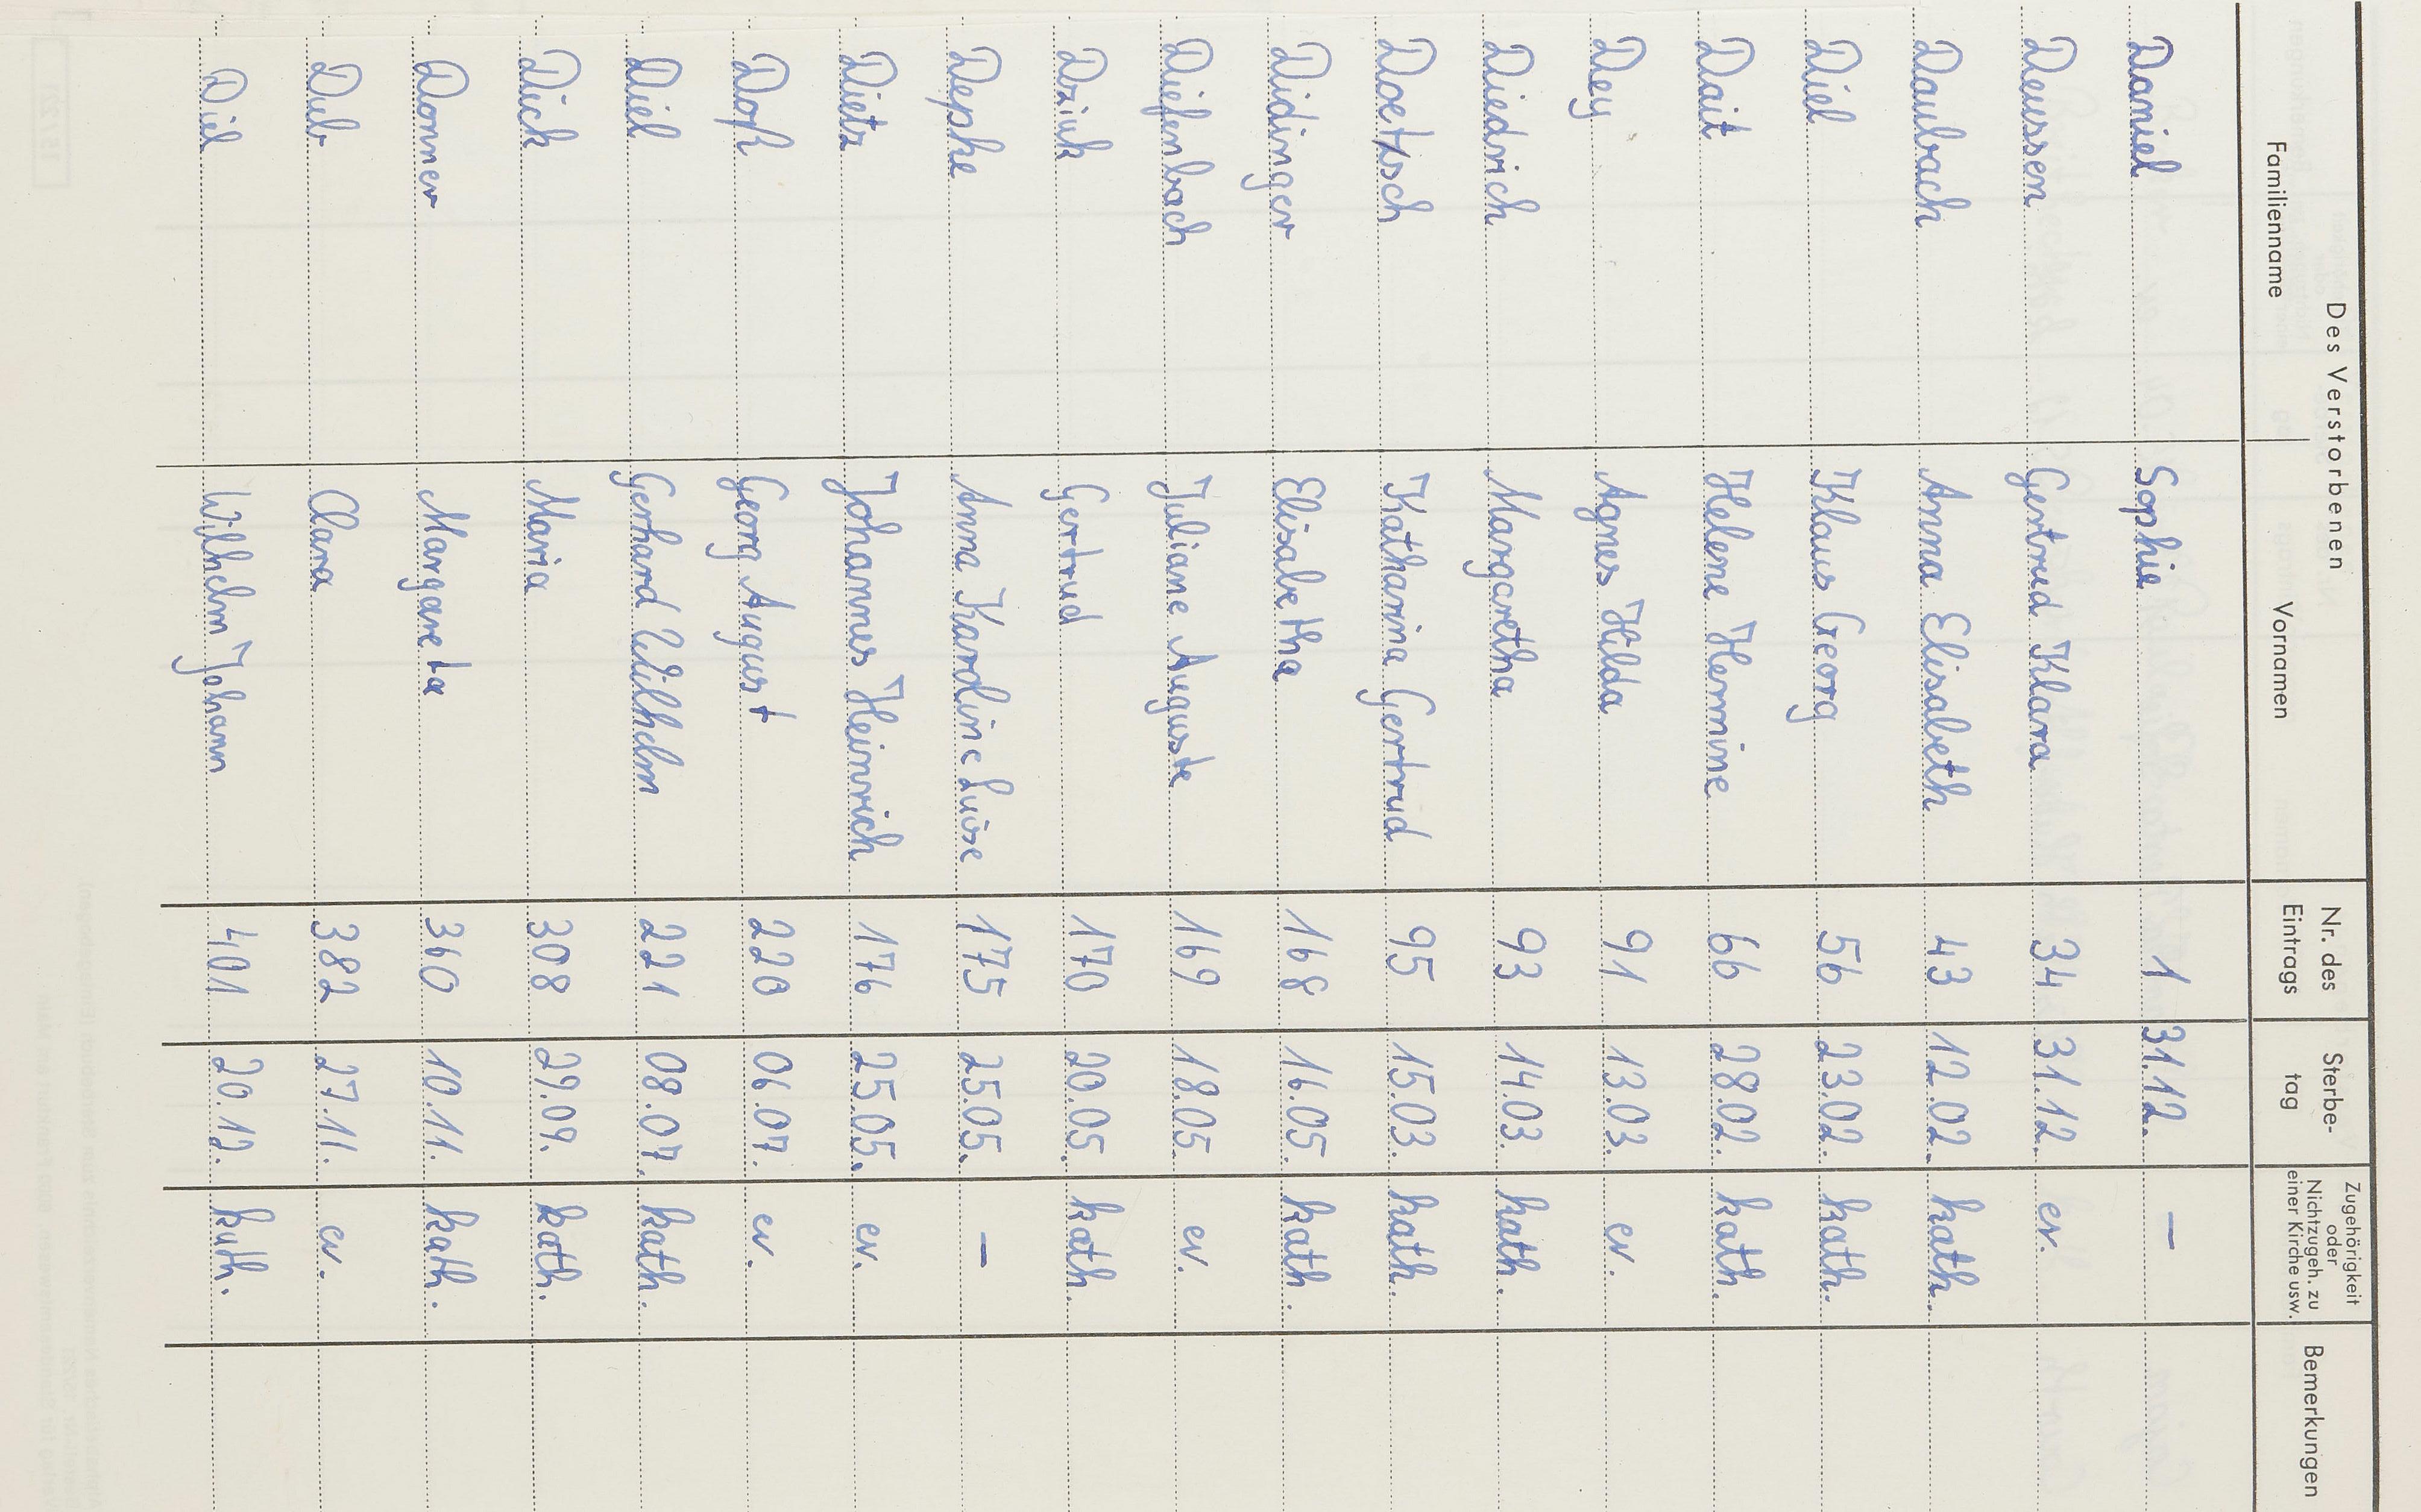 Des Verstorbenen
Familienname Vornamen Nr. des Eintrags Sterbe-tag Zugehörigkeit oder Nichtzugeh. zu einer Kirche usw. Bemerkungen
Daniel Sophie 1 31.12. —
Deussen Gertrud Klara 34 31.12. ev.
Daubach Anna Elisabeth 43 12.02. kath.
Diel Klaus Georg 56 23.02. kath.
Dait Helene Hermine 66 28.02. kath.
Dey Agnes Hilda 91 13.03. ev.
Diedrich Margaretha 93 14.03. kath.
Doetsch Katharina Gertrud 95 15.03. kath.
Didinger Elisabetha 168 16.05. kath.
Diefenbach Juliane Auguste 169 18.05. ev.
Dziuk Gertrud 170 20.05. kath.
Depke Anna Karoline Luise 175 25.05. —
Dietz Johannes Heinrich 176 25.05. ev.
Doß Georg August 220 06.07. ev.
Diel Gerhard Wilhelm 221 08.07. kath.
Dick Maria 308 29.09. kath.
Donner Margareta 360 10.11. kath.
Dub Clara 382 27.11. ev.
Diel Wilhelm Johann 401 20.12. kath.